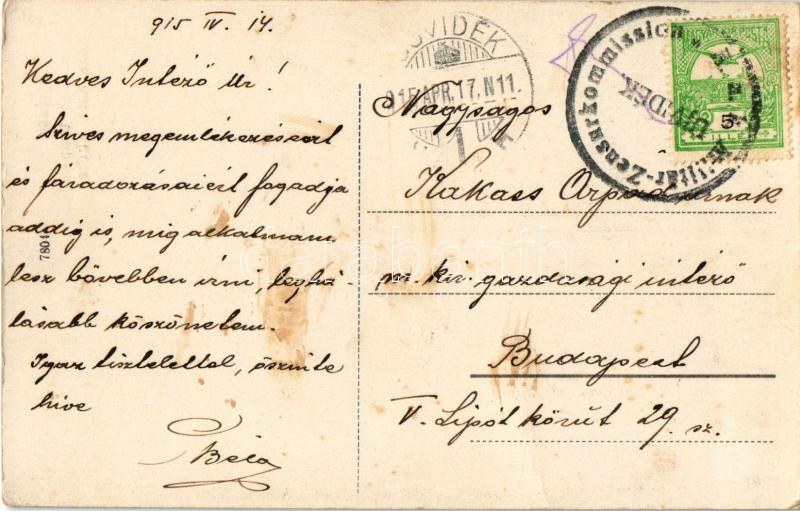 915 IV. 14.
Kedves Intéző Úr!
Szives megemlékezéseiért
és fáradozásaiért fogadja
addig is, mig alkalmam
lesz bővebben irni, leghá-
lásabb köszönetem.
Igaz tisztelettel, őszinte
hive
Béla
7801
UJVIDÉK
915 APR. 17. N 11
1
Militär-Zensurkommission
UJVIDÉK
5
FILLÉR
Nagyságos
Kakass Árpád úrnak
m. kir. gazdasági intéző
Budapest
V. Lipót körút 29. sz.
darabanth